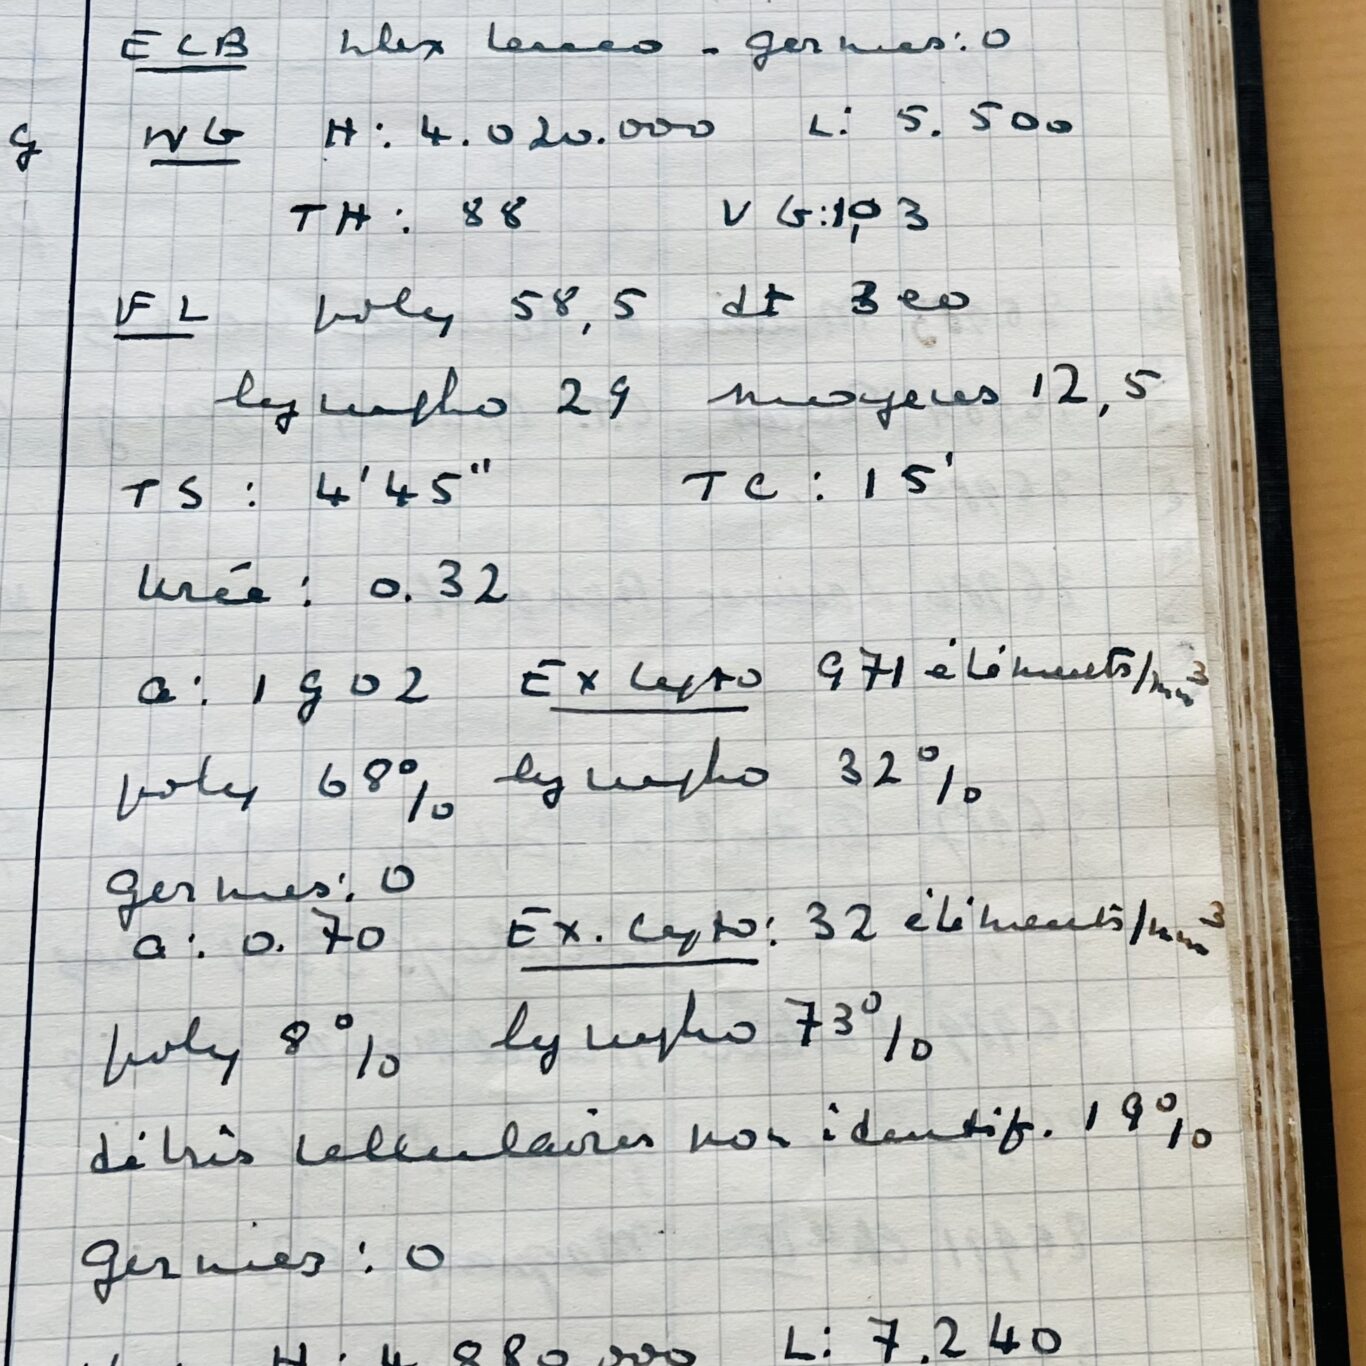 ECB nbx leuco - germes: 0
g NG H: 4.020.000 L: 5.500
TH: 88 VG: 1,03
FL poly 58,5 dt 3 eo
lympho 29 moyens 12,5
TS: 4'45" TC: 15'
Urée: 0.32
a: 1902 Ex cyto 971 éléments/mm³
poly 68% lympho 32%
germes: 0
a: 0.70 Ex. cyto: 32 éléments/mm³
poly 8% lympho 73%
débris cellulaires non identif. 19%
Germes: 0
H: 4.880.000 L: 7.240